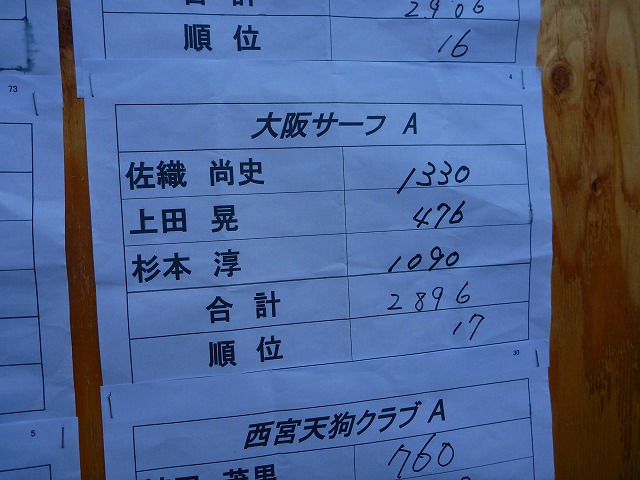 合計 2906
順位 16
73
4
大阪サーフ A
佐織 尚史 1330
上田 晃 476
杉本 淳 1090
合計 2896
順位 17
30
5
西宮天狗クラブ A
760